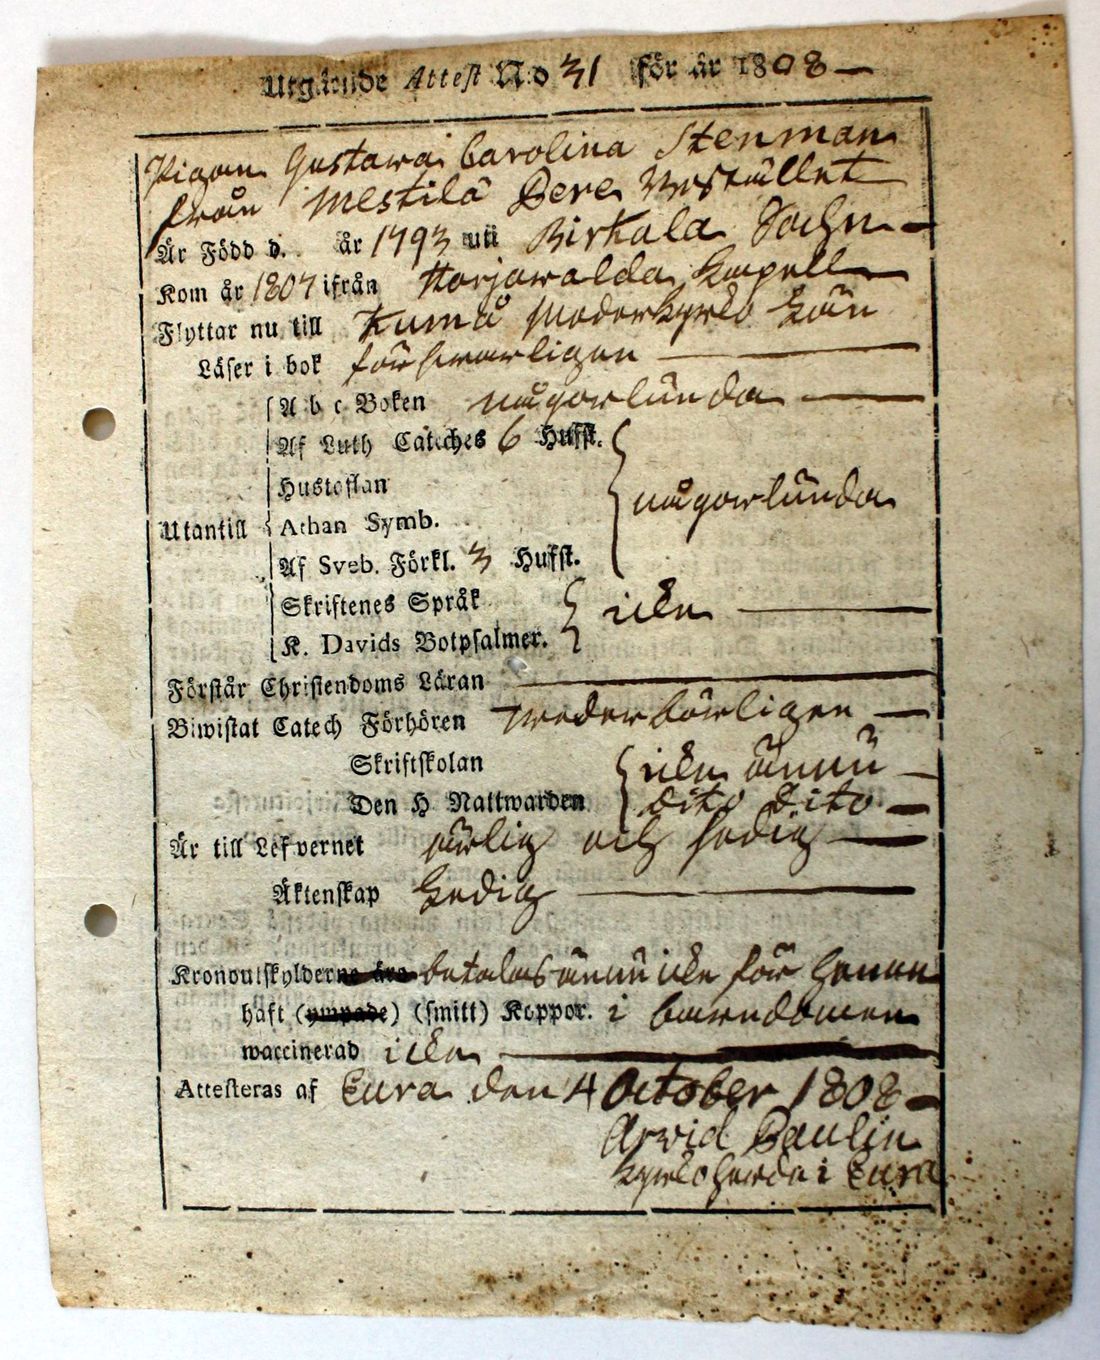 Utgående Attest N:o 31 för år 1808
Pigan Gustava Carolina Stenman
från Mestilä Bere
Är Född d. år 1793 uti Birkala Sochn
Kom år 1807 ifrån Korjowalda Kapell
Flyttar nu till Kumå Moderkyrko
Läser i bok försvarligen
A b c Boken någorlunda
Af Luth Cateches 6 Hufst.
Hustaflan
någorlunda
Utantill Athan Symb.
Af Sveb. Förkl. 3 Hufst.
Skriftenes Språk
icke
K. Davids Botpsalmer.
Förstår Christendoms Läran
Biwistat Catech Förhören wederbörligen
Skriftskolan icke ännu
Den H. Nattwarden dito dito
Är till Lefvernet ärlig och sedig
Äktenskap Ledig
Kronoutskylderne äro betalas ännu icke för henne
haft (ympade) (smitt) Koppor. i barndomen
waccinerad icke
Attesteras af Eura den 4 October 1808
Arvid Paulin
Kyrkoherde i Eura